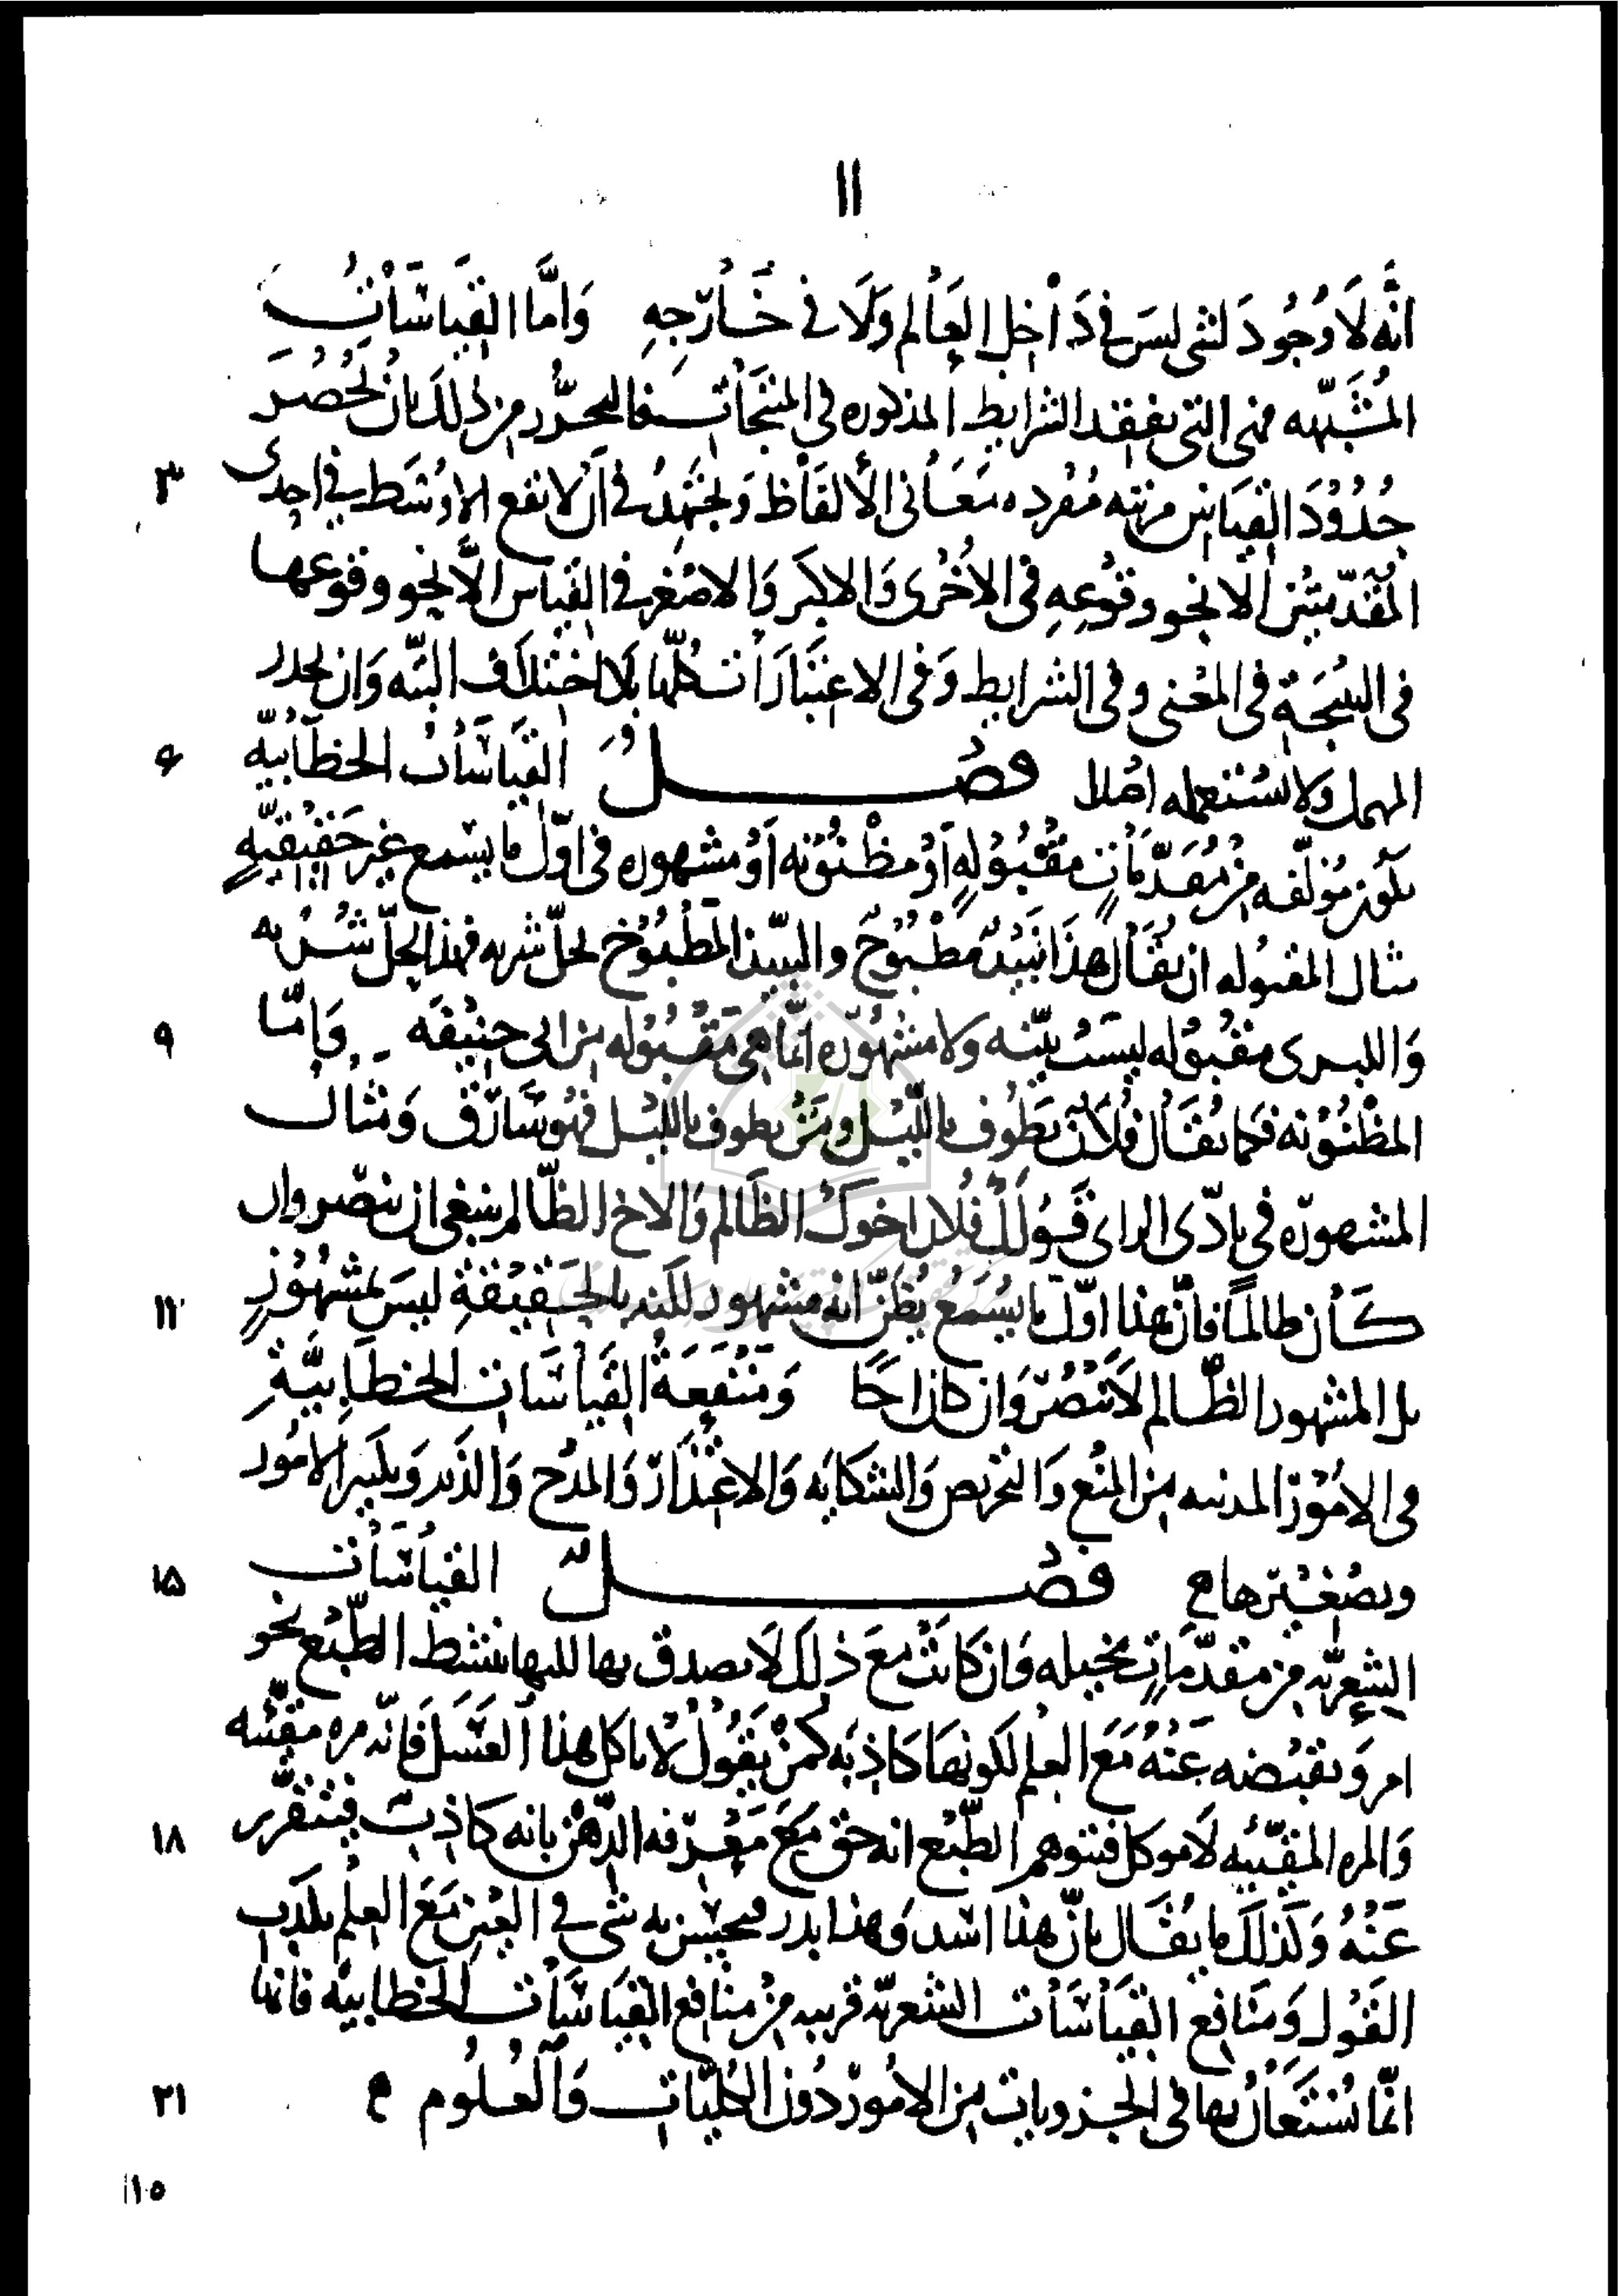 ١١
انَّه لَا وُجُودَ لشى ليسَ فى دَاخِل العَالم وَلَا فى خَارِجِهِ وَامَّا القيَاسَاتُ
المُشَبّهه فهى التى تفقد الشرايط المذكوره فى المنتجَات فالتحرُّز من ذلك بان تُحصُر
٣ حُدُوُدَ القيَاس مرتبه مُفرده مَعَانى الألفَاظ وَتجتهدُ فى انْ لا يقع الاوسَط فى احِدى
المُقدّمتَين الا نحو وقُوعِهِ فى الأخْرى وَالاكبَر وَالاصْغر فى القيَاس الَّا نحو وقوعها
فى النتيجَة فى المعْنى وفى الشرايط وَفى الاعتبَارَات كلّها بلَا اختلَاف البتّه وَان تحذر
٦ المهمل وَلا تستَعمله اصْلا فصْـــل القيَاسَات الخطَابيّه
تكون مُؤلّفه من مُقدّمَاتٍ مقْبُوُلهٍ اَوْ مظْنُوُنه اَوْ مشهوره فى اوّل ما يسْمع غير حَقيْقيّهٍ
مثال المقبُوله ان يُقَال هذَا نَبيْذٌ مطْبُوْخٌ والنبيذ المَطْبُوْخ يحلّ شربه فهَذا يحلّ شُرْبه
٩ وَالكبرى مقبُوله ليسَتْ بيّنه ولا مشهُوُره انّما هِى مَقْبُوُله من ابى حنيْفَه وَامّا
المظْنُوُنه فكما يُقَال فُلَان يَطُوُف باللّيْل ومَنْ يطوف بالليْل فهُو سَارق وَمثال
المشهوره فى بادّى الراى قَوُلكَ فُلان اخوكَ الظَالم وَالاخ الظَّالم ينبغى ان ينصَر وان
١٢ كَان ظالمًا فانّ هَذا اوّل ما يسْمَع يُظَنّ انه مشهور لكنه بالحَقيْقةِ ليسَ بمشهُوُرٍ
بل المشهور الظّالم لَا يُنْصَر وَان كان اخًا وَمَنْفَعَةُ القيَاسَات الخطَابيَّةِ
فى الأمُوْر المدنيه من المنْع وَالتحريص وَالشكايَه وَالاعْتذَار وَالمدْح وَالذم وَتكبير الأمُور
١٥ وتصْغيْرها فصْـــل القيَاسَات
الشِعريّه من مقدّمَاتٍ مخيله وَان كانَتْ معَ ذلكَ لَا يصدق بها لكنها تبسَط الطّبْع نحو
امر وَتقبْضه عَنْهُ مَعَ العلم لكونهَا كاذبَه كمَنْ يَقُوُل لا تاكل هذا العَسَل فَانّه مره مقيّئه
١٨ وَالمره المقيّئه لَا توكل فيتوهم الطّبْع انه حق مَعَ مَعْرفه الذّهْن بانه كَاذب فيتقزّز
عَنْهُ وَكَذلكَ ما يُقَال بانّ هذا اسَد وَهذا بدر فيحس به شى فى العَيْن مَعَ العلم بكذب
القَوْل وَمَنَافع القيَاسَات الشعريّه قريبه من منَافع القيَاسَات الخطابيّه فانها
٢١ انّما يُسْتَعَانُ بهَا فى الجزويات من الأمُور دُون الكُلّيَات وَالعُلُوم
١٥